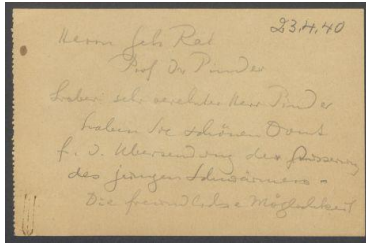 23.4.40
Herrn Geh Rat
Prof Dr Pinder
Lieber sehr verehrter Herr Pinder
Haben Sie schönen Dank
f. d. Übersendung der
des jungen Schwärmers –
Die freundliche Möglichkeit